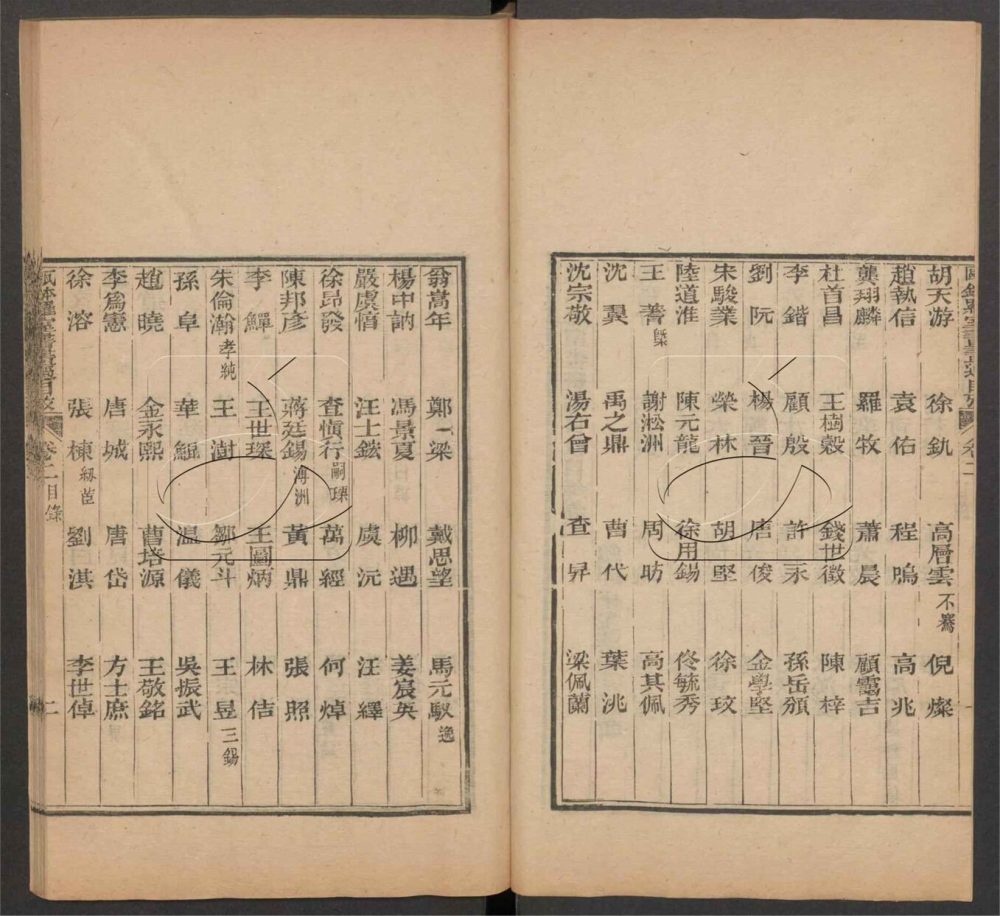 胡天游 徐釚 高層雲不騫 倪燦
趙執信 袁佑 程鳴 高兆
龔翔麟 羅牧 蕭晨 顧靄吉
杜首昌 王樹榖 錢世徵 陳梓
李鍇 顧殷 許永 孫岳頒
劉阮 楊晉 唐俊 金學堅
宋駿業 榮林 胡堅 徐玫
陸道淮 陳元龍 徐用錫 佟毓秀
王蓍槩 謝淞洲 周昉 高其佩
沈翼 禹之鼎 曹代 葉洮
沈宗敬 湯右曾 查昇 梁佩蘭
翁嵩年 鄭梁 戴思望 馬元馭逸
楊中訥 馮景夏 柳遇 姜宸英
嚴虞惇 汪士鋐 虞沅 汪繹
徐昂發 查慎行嗣瑮 萬經 何焯
陳邦彥 蔣廷錫溥洲 黃鼎 張照
李鱓 王世琛 王圖炳 林佶
朱倫瀚孝純 王澍 鄒元斗 王昱三錫
孫阜 華鯤 温儀 吳振武
趙曉 金永熙 曹培源 王敬銘
李爲憲 唐城 唐岱 方士庶
徐溶 張棟 劉淇 李世倬
甌鉢羅室書畫過目攷 卷二目錄 二